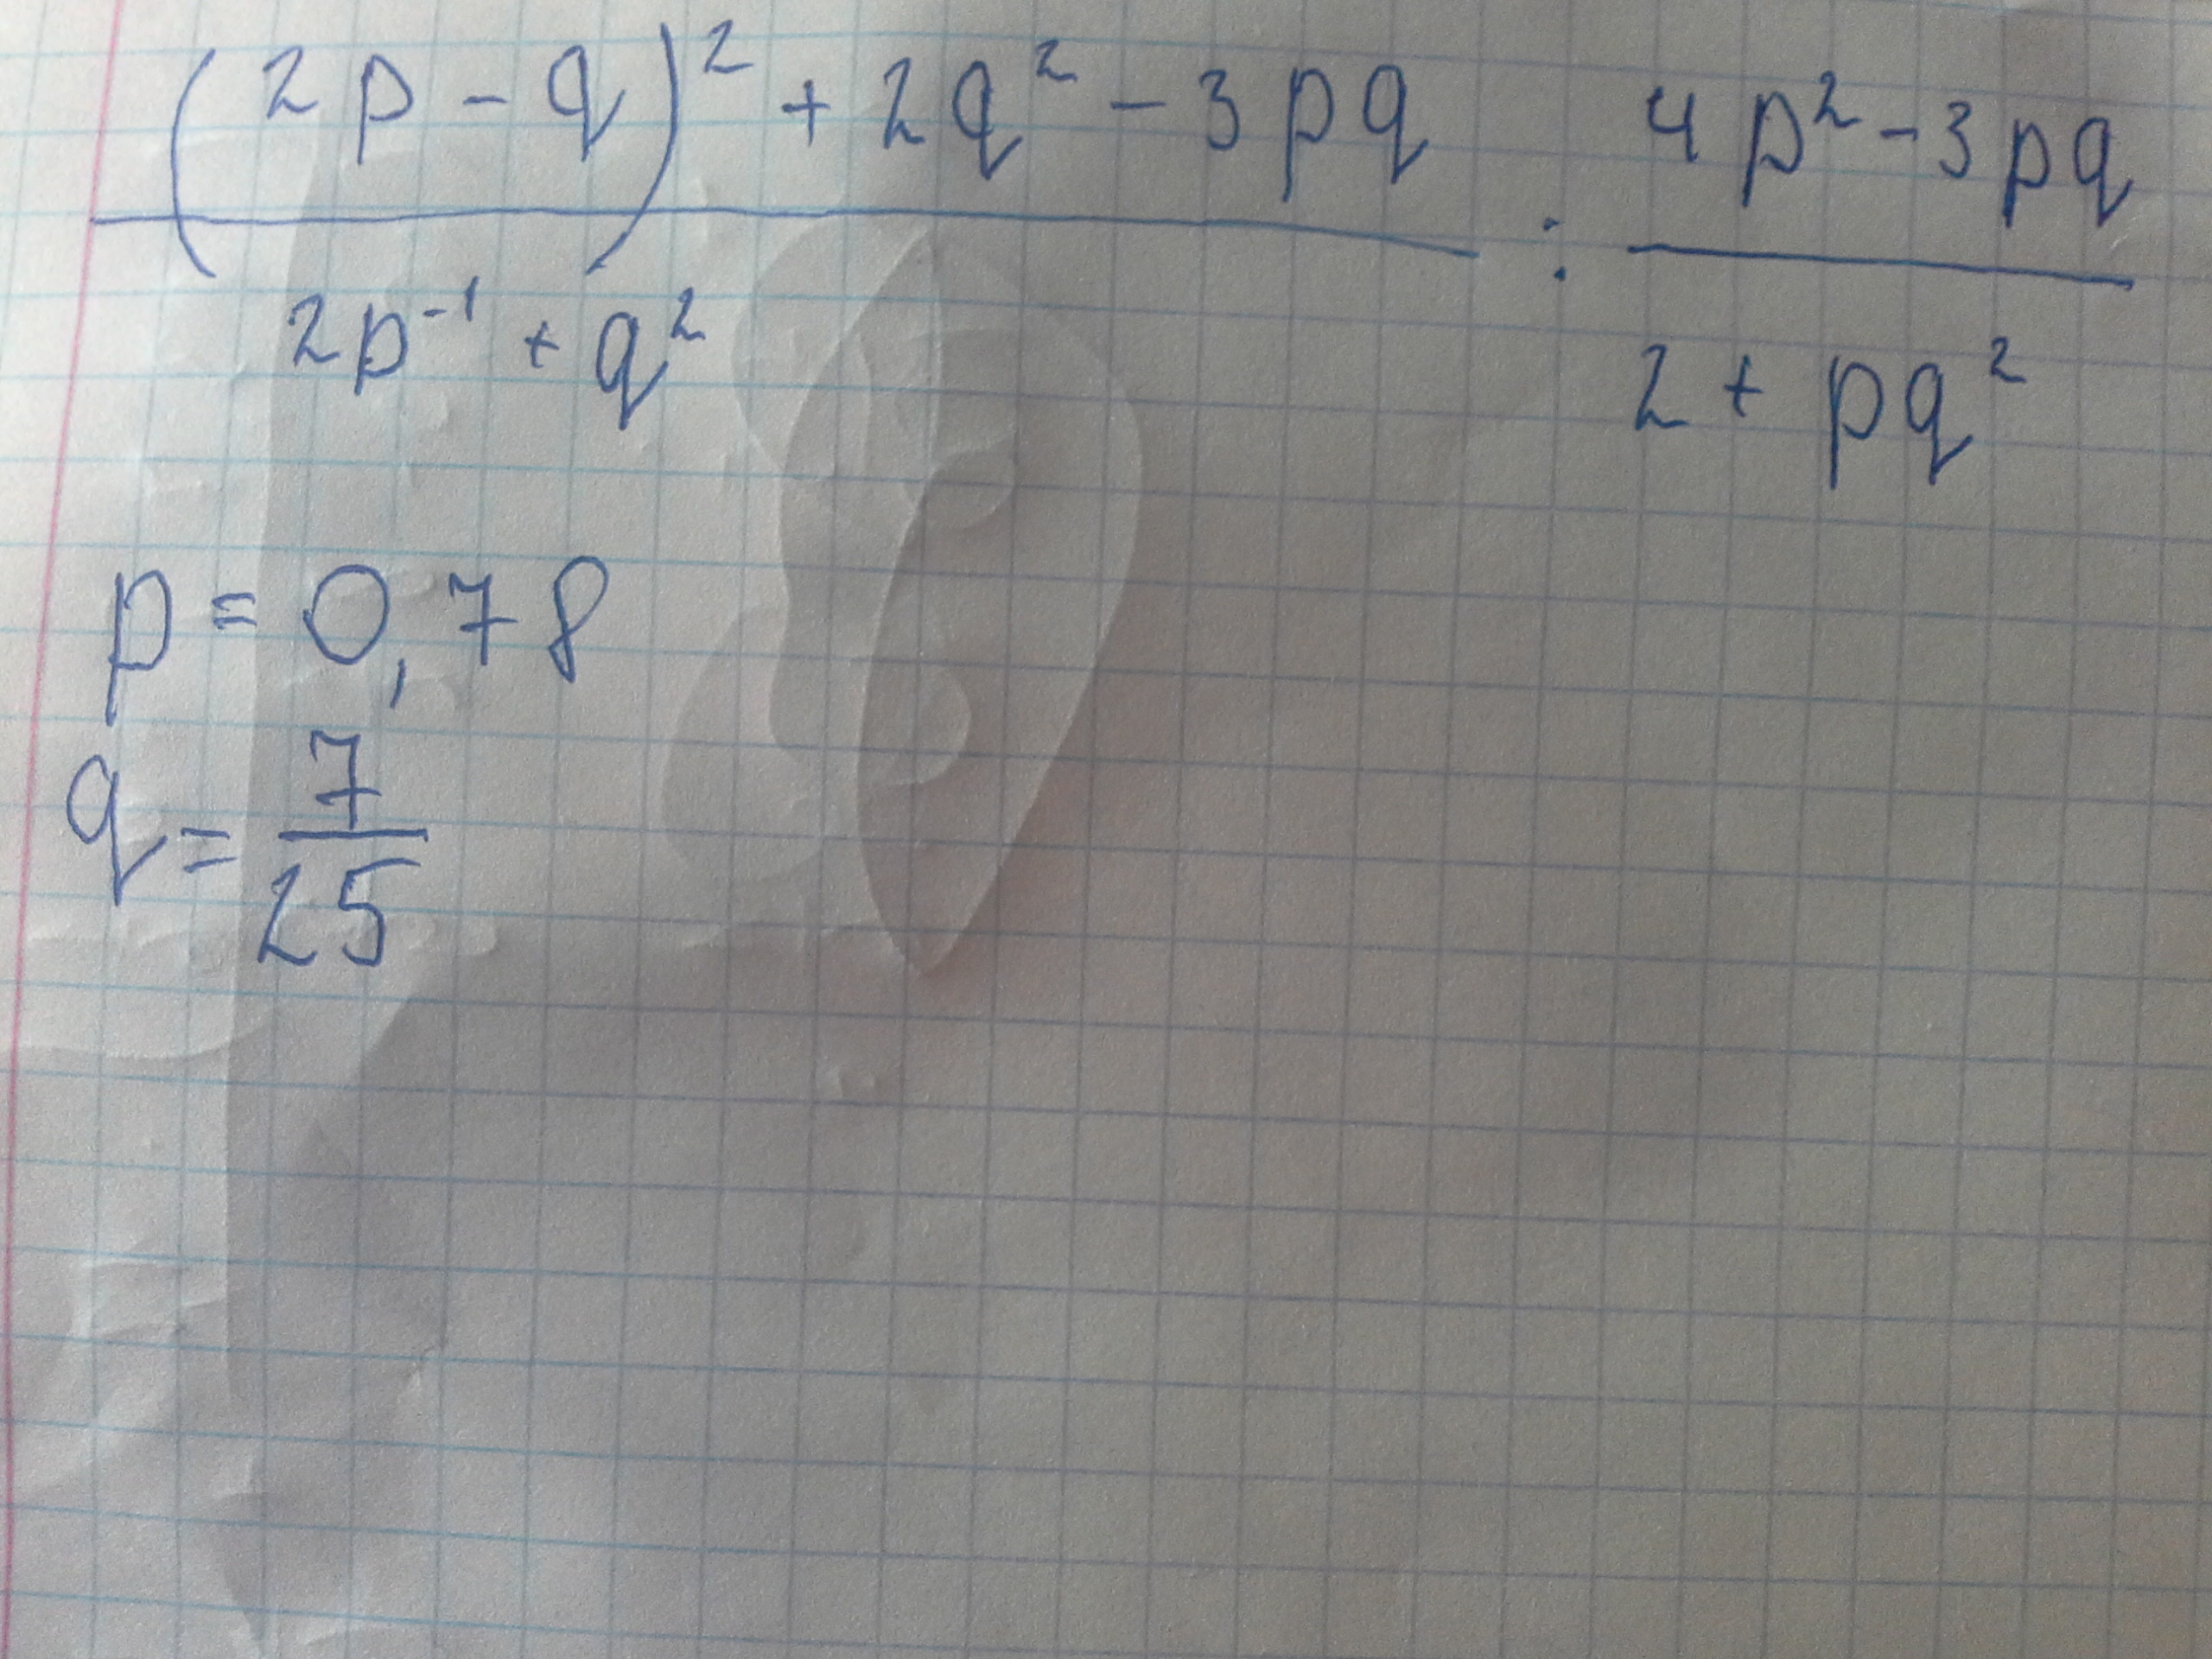 (2p - q)² + 2q² - 3pq / 2p⁻¹ + q² : 4p² - 3pq / 2 + pq²
p = 0,78
q = 7/25